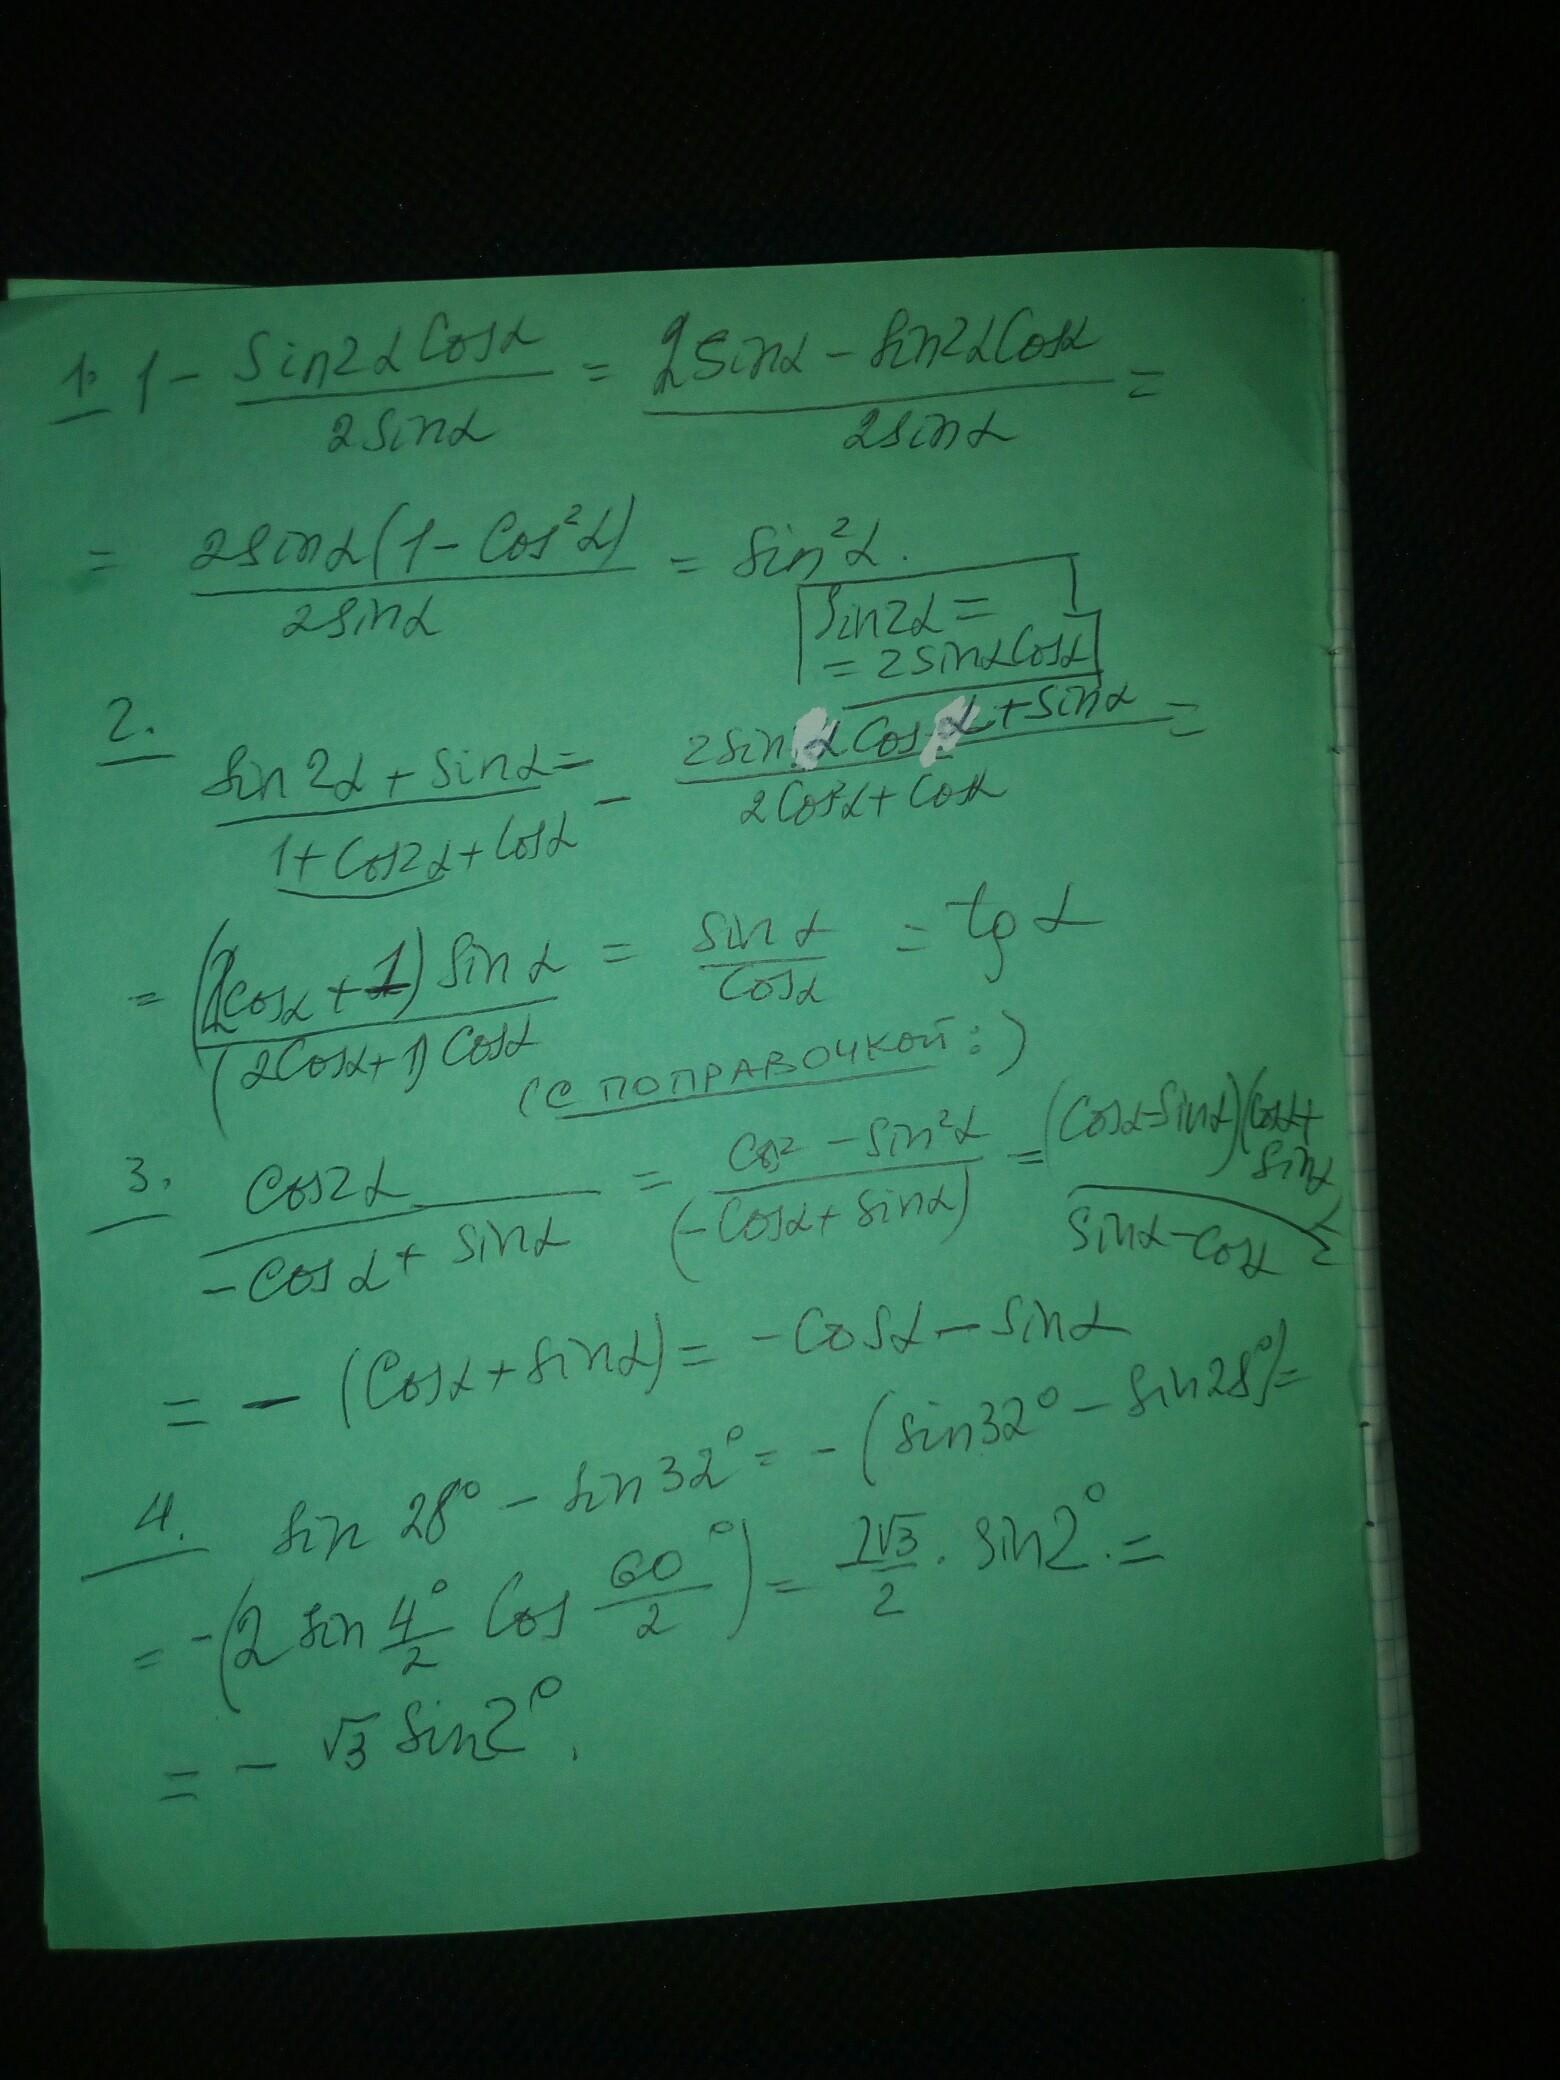 1. 1 - sin2α cosα / 2sinα = 2sinα - sin2α cosα / 2sinα =
= 2sinα(1 - cos²α) / 2sinα = sin²α.
sin2α =
= 2sinα cosα
2. sin2α + sinα / 1 + cos2α + cosα = 2sinα cosα + sinα / 2cos²α + cosα =
= (2cosα + 1) sinα / (2cosα + 1) cosα = sinα / cosα = tg α
(С ПОПРАВОЧКОЙ :)
3. cos2α / -cosα + sinα = cos² - sin²α / (-cosα + sinα) = (cosα - sinα)(cosα + sinα) / sinα - cosα =
= - (cosα + sinα) = - cosα - sinα
4. sin 28° - sin 32° = - (sin32° - sin28°) =
= -(2 sin 4°/2 cos 60°/2) = 2√3/2 · sin2°. =
= - √3 sin2°.